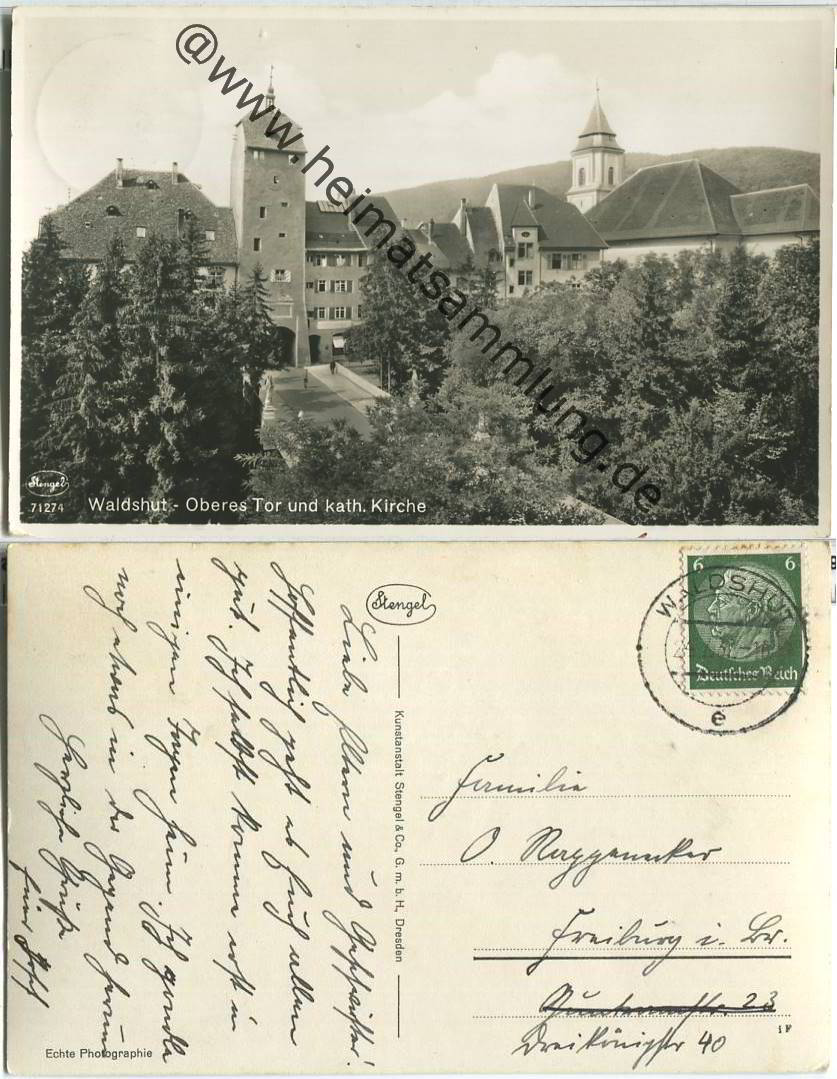 @www.heimatsammlung.de
Stengel
71274
Waldshut - Oberes Tor und kath. Kirche
Liebe Eltern und Geschwister!
Hoffentlich geht es Euch allen
gut. Ich selbst komme erst in
einigen Tagen heim. Ich gondle
noch etwas in der Gegend herum
Herzliche Grüße
Euer
Stengel
Kunstanstalt Stengel & Co., G. m. b. H., Dresden
Echte Photographie
6 6
Deutsches Reich
WALDSHUT
e
Familie
O. Roggenucker
Freiburg i. Br.
23
Dreikönigstr 40
iF